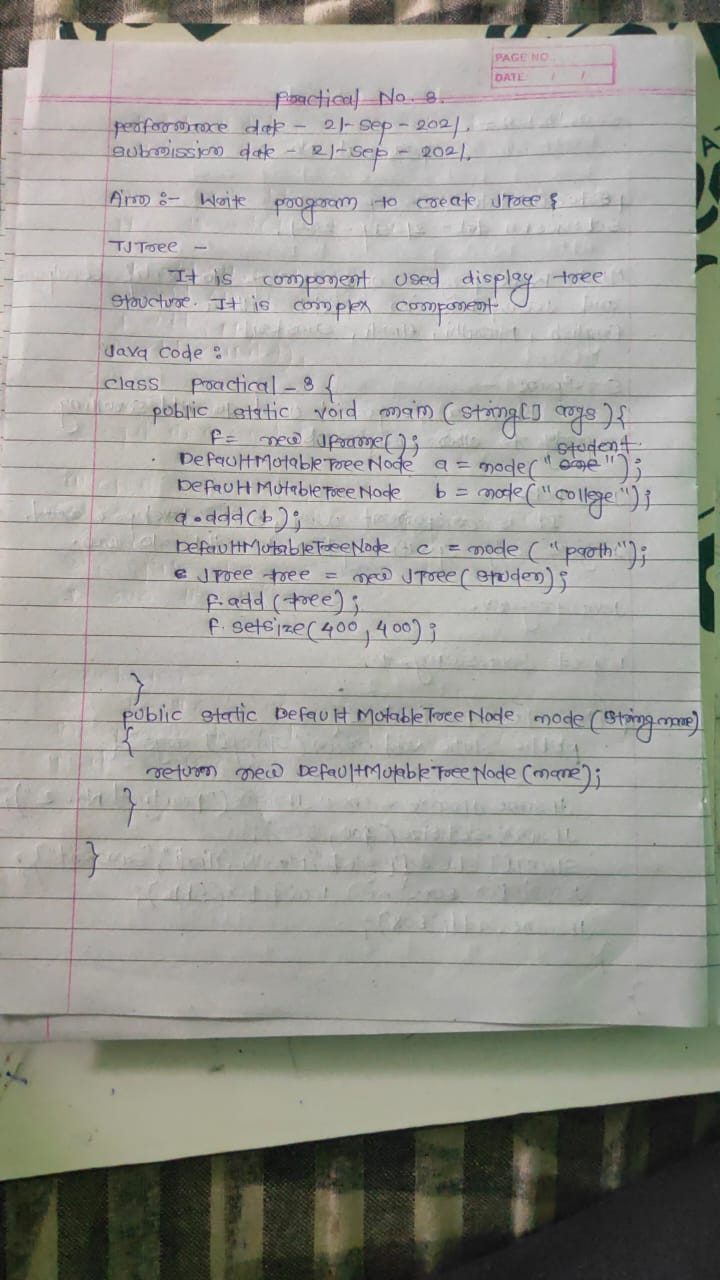 PAGE NO.
DATE: / /
Practical No. 8.
performance date - 21-Sep-2021.
submission date - 21-Sep-2021.
Aim :- Write program to create JTree &
TJTree -
It is component used display tree
structure. It is complex component
Java code :
class Practical-8 {
public static void main (string[] args) {
f = new JFrame();
student
DefaultMutableTreeNode a = node(" ");
DefaultMutableTreeNode b = node("college");
a.add(b);
DefaultMutableTreeNode c = node ("parth");
JTree tree = new JTree(studen);
f.add (tree);
f.setsize(400,400);
}
public static DefaultMutableTreeNode node (string name)
{
return new DefaultMutableTreeNode (name);
}
}